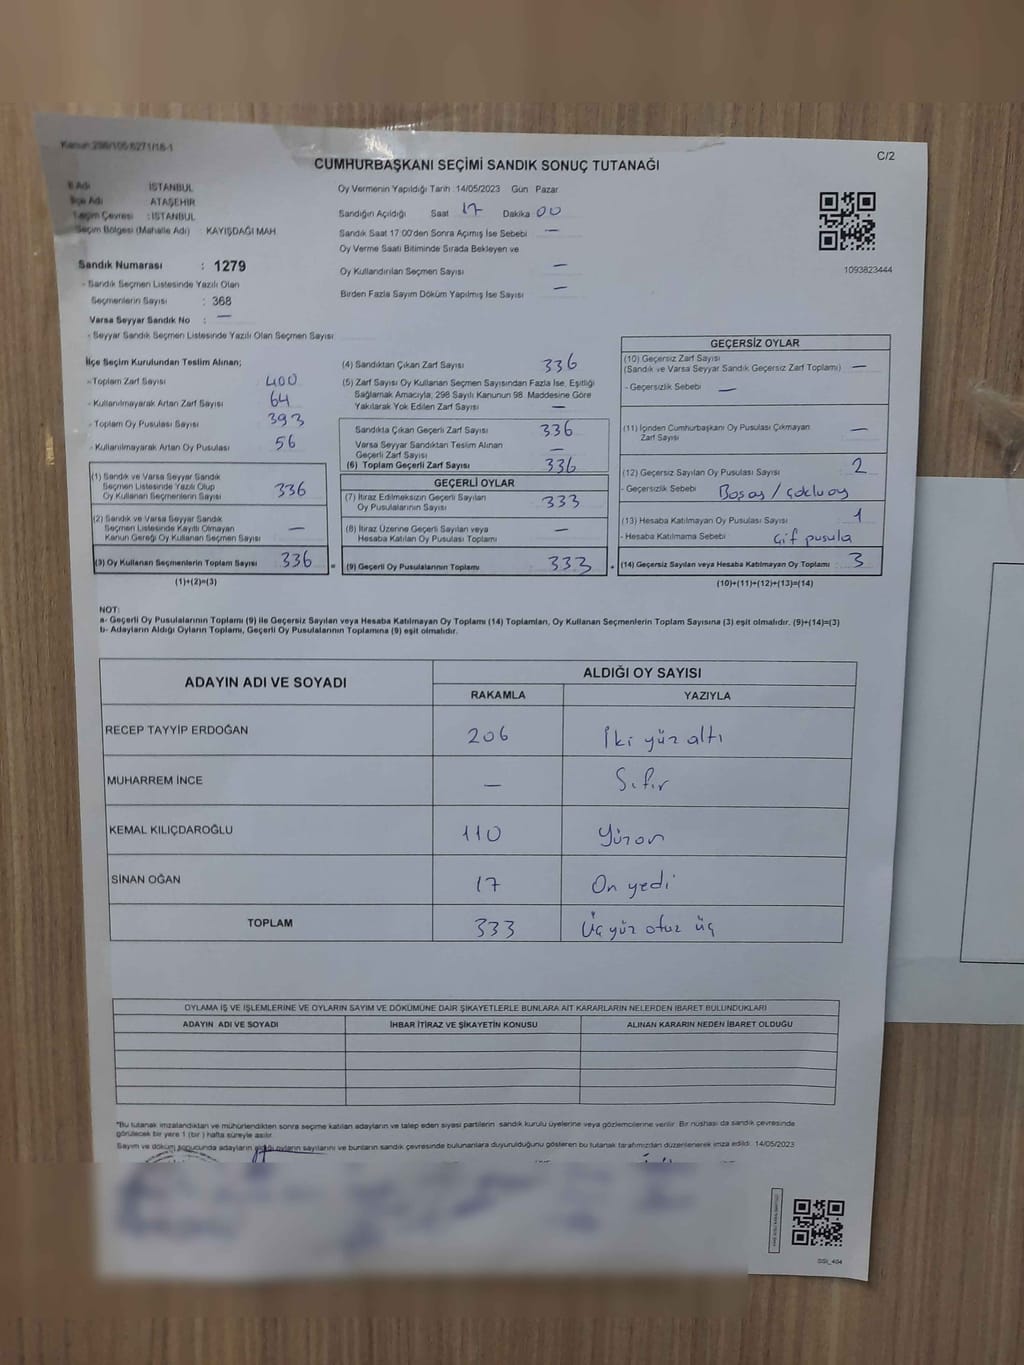 Kanun:298/105;6271/18-1
C/2
CUMHURBAŞKANI SEÇİMİ SANDIK SONUÇ TUTANAĞI
İl Adı İSTANBUL
İlçe Adı ATAŞEHİR
Seçim Çevresi : İSTANBUL
Seçim Bölgesi (Mahalle Adı) : KAYIŞDAĞI MAH.
Sandık Numarası : 1279
- Sandık Seçmen Listesinde Yazılı Olan
Seçmenlerin Sayısı : 368
Varsa Seyyar Sandık No : —
- Seyyar Sandık Seçmen Listesinde Yazılı Olan Seçmen Sayısı
Oy Vermenin Yapıldığı Tarih :14/05/2023 Gün Pazar
Sandığın Açıldığı Saat 17 Dakika 00
Sandık Saat 17:00'den Sonra Açmış İse Sebebi —
Oy Verme Saati Bitiminde Sırada Bekleyen ve
Oy Kullandırılan Seçmen Sayısı —
Birden Fazla Sayım Döküm Yapılmış İse Sayısı —
1093823444
İlçe Seçim Kurulundan Teslim Alınan;
- Toplam Zarf Sayısı 400
- Kullanılmayarak Artan Zarf Sayısı 64
- Toplam Oy Pusulası Sayısı 393
- Kullanılmayarak Artan Oy Pusulası 56
(1) Sandık ve Varsa Seyyar Sandık
Seçmen Listesinde Yazılı Olup
Oy Kullanan Seçmenlerin Sayısı 336
(2) Sandık ve Varsa Seyyar Sandık
Seçmen Listesinde Kayıtlı Olmayan
Kanun Gereği Oy Kullanan Seçmen Sayısı —
(3) Oy Kullanan Seçmenlerin Toplam Sayısı 336 =
(1)+(2)=(3)
(4) Sandıktan Çıkan Zarf Sayısı 336
(5) Zarf Sayısı Oy Kullanan Seçmen Sayısından Fazla İse, Eşitliği
Sağlamak Amacıyla, 298 Sayılı Kanunun 98. Maddesine Göre
Yakılarak Yok Edilen Zarf Sayısı —
Sandıkta Çıkan Geçerli Zarf Sayısı 336
Varsa Seyyar Sandıktan Teslim Alınan
Geçerli Zarf Sayısı —
(6) Toplam Geçerli Zarf Sayısı 336
GEÇERLİ OYLAR
(7) İtiraz Edilmeksizin Geçerli Sayılan
Oy Pusulalarının Sayısı 333
(8) İtiraz Üzerine Geçerli Sayılan veya
Hesaba Katılan Oy Pusulası Toplamı —
(9) Geçerli Oy Pusulalarının Toplamı 333 +
GEÇERSİZ OYLAR
(10) Geçersiz Zarf Sayısı
(Sandık ve Varsa Seyyar Sandık Geçersiz Zarf Toplamı) —
- Geçersizlik Sebebi —
(11) İçinden Cumhurbaşkanı Oy Pusulası Çıkmayan
Zarf Sayısı —
(12) Geçersiz Sayılan Oy Pusulası Sayısı 2
- Geçersizlik Sebebi Boş oy / çoklu oy
(13) Hesaba Katılmayan Oy Pusulası Sayısı 1
- Hesaba Katılmama Sebebi Çif pusula
(14) Geçersiz Sayılan veya Hesaba Katılmayan Oy Toplamı 3
(10)+(11)+(12)+(13)=(14)
NOT:
a- Geçerli Oy Pusulalarının Toplamı (9) ile Geçersiz Sayılan veya Hesaba Katılmayan Oy Toplamı (14) Toplamları, Oy Kullanan Seçmenlerin Toplam Sayısına (3) eşit olmalıdır. (9)+(14)=(3)
b- Adayların Aldığı Oyların Toplamı, Geçerli Oy Pusulalarının Toplamına (9) eşit olmalıdır.
ADAYIN ADI VE SOYADI ALDIĞI OY SAYISI
RAKAMLA YAZIYLA
RECEP TAYYİP ERDOĞAN 206 İki yüz altı
MUHARREM İNCE — Sıfır
KEMAL KILIÇDAROĞLU 110 Yüzon
SİNAN OĞAN 17 On yedi
TOPLAM 333 Üç yüz otuz üç
OYLAMA İŞ VE İŞLEMLERİNE VE OYLARIN SAYIM VE DÖKÜMÜNE DAİR ŞİKAYETLERLE BUNLARA AİT KARARLARIN NELERDEN İBARET BULUNDUKLARI
ADAYIN ADI VE SOYADI İHBAR İTİRAZ VE ŞİKAYETİN KONUSU ALINAN KARARIN NEDEN İBARET OLDUĞU
*Bu tutanak imzalandıktan ve mühürlendikten sonra seçime katılan adayların ve talep eden siyasi partilerin sandık kurulu üyelerine veya gözlemcilerine verilir. Bir nüshası da sandık çevresinde
görülecek bir yere 1 (bir ) hafta süreyle asılır.
Sayım ve döküm sonucunda adayların aldığı oyların sayılarını ve bunların sandık çevresinde bulunanlara duyurulduğunu gösteren bu tutanak tarafımızdan düzenlenerek imza edildi. 14/05/2023